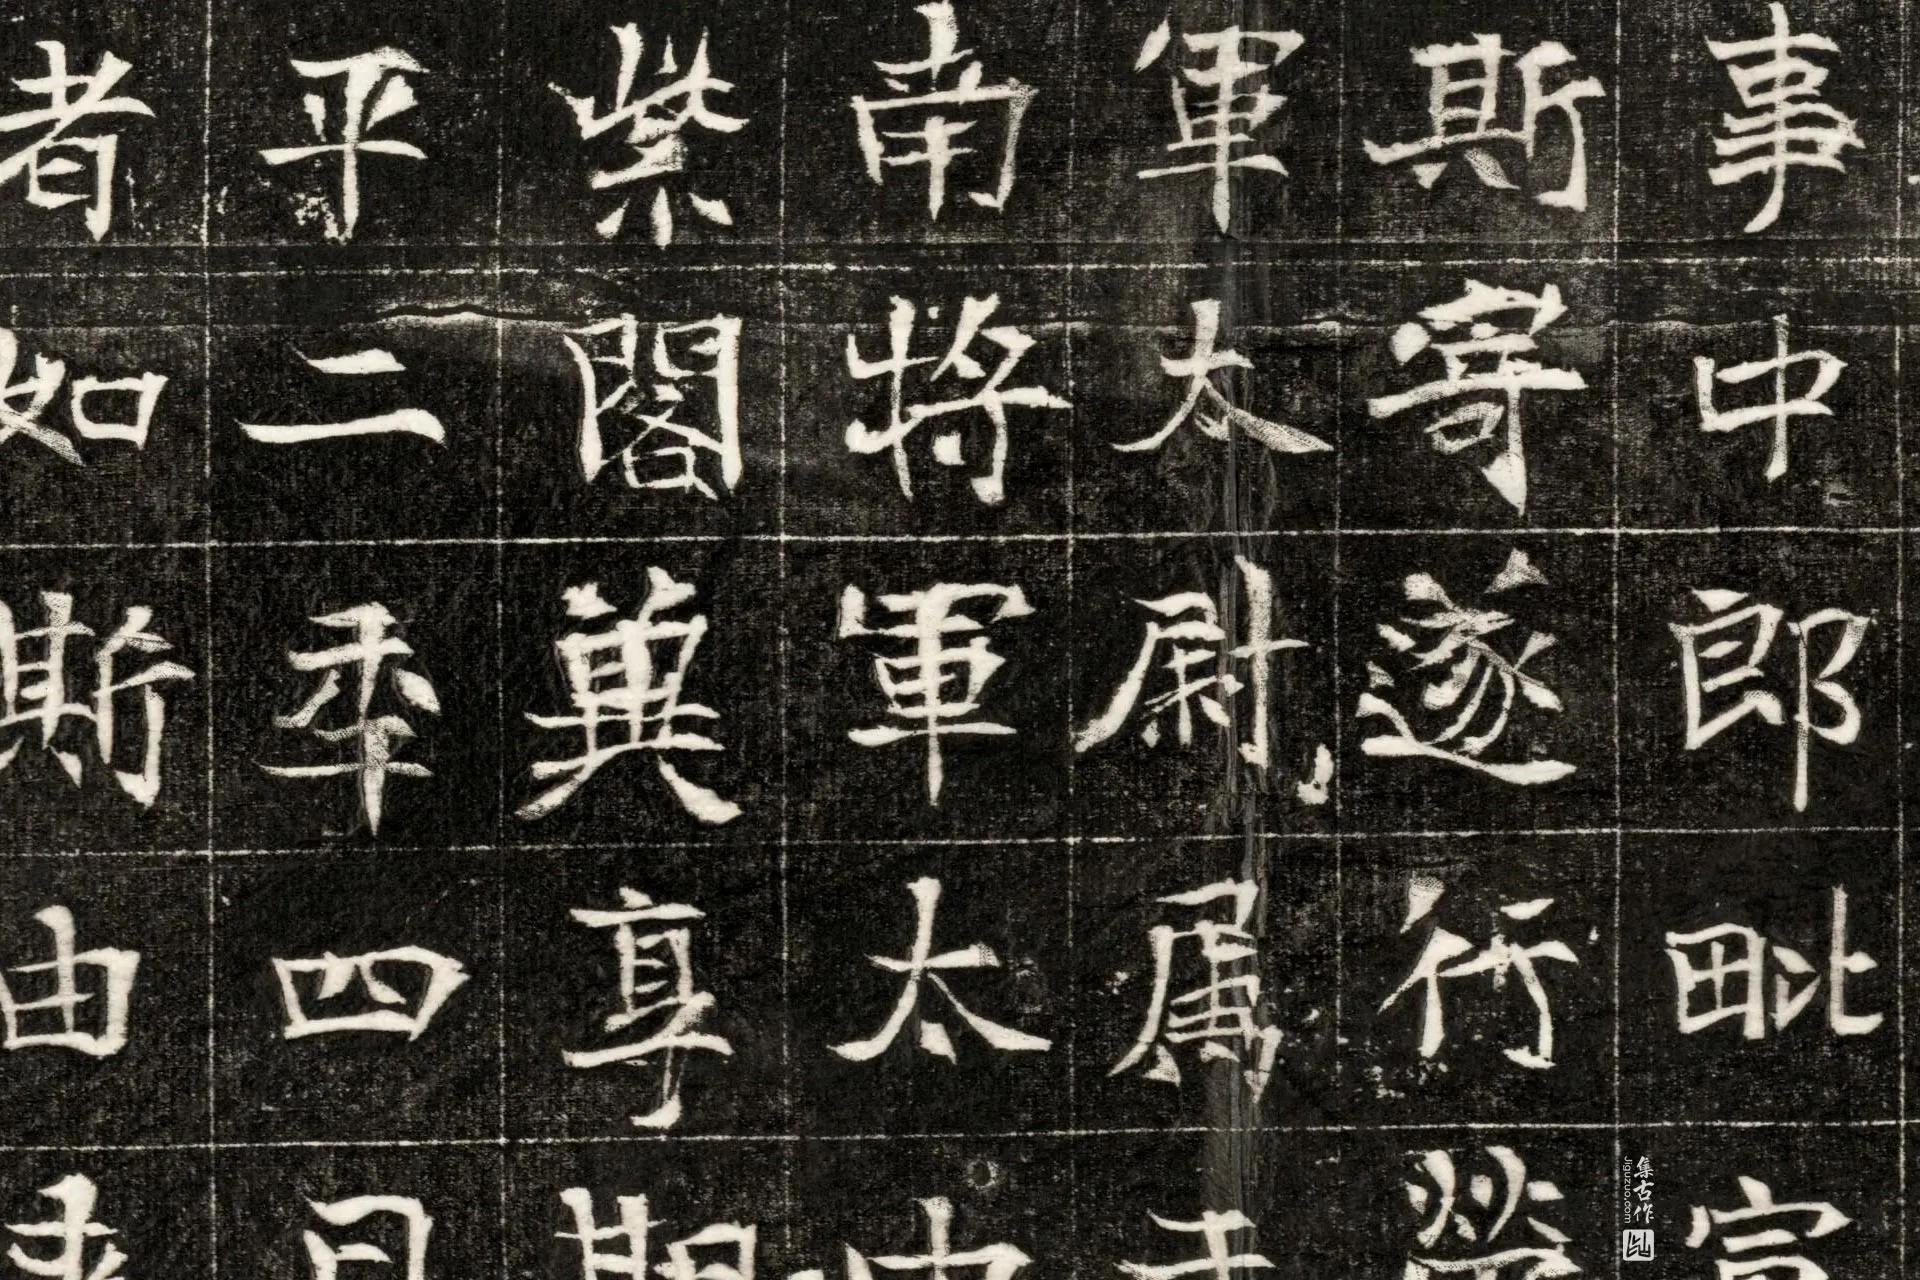 事中郎毗
斯寄遂行營
軍太尉属
南將軍太中
紫閣冀享期
平二秊四月
者如斯由
集古作
Jiguzuo.com